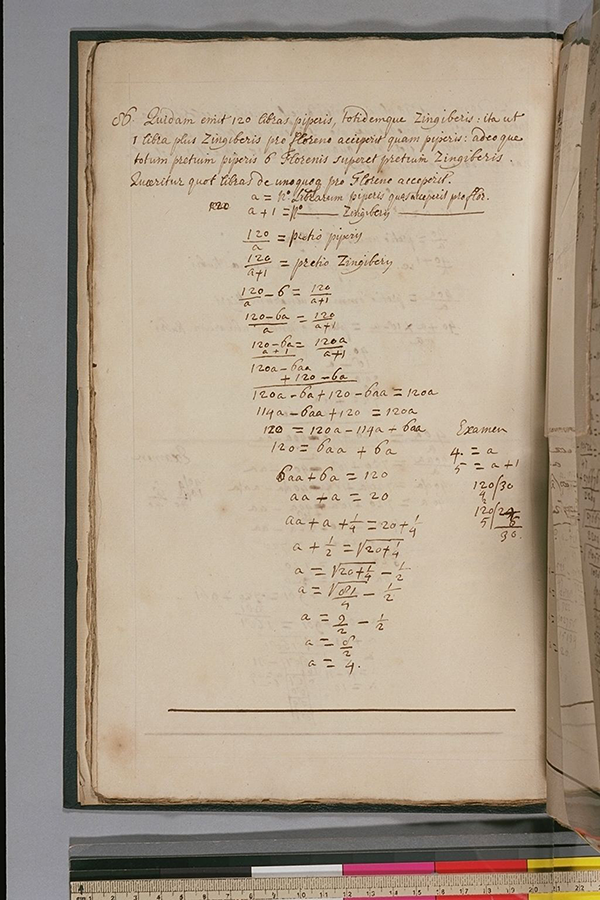 86. Quidam emit 120 libras piperis, totidemque Zingiberis: ita ut
1 libra plus Zingiberis pro Floreno acceperit quam piperis: adeoque
totum pretium piperis 6 Florenis superet pretium Zingiberis.
Quæritur quot libras de unoquoq pro Floreno acceperit.
a = No. Librarum piperis quas acceperit pro flor.
a+1 = No. Zingiberis
120/a = pretio piperis
120/a+1 = pretio Zingiberis
120/a - 6 = 120/a+1
120-6a/a = 120/a+1
120-6a = 120a/a+1
a+1
120a - 6aa
+ 120 - 6a
120a - 6a + 120 - 6aa = 120a
114a - 6aa + 120 = 120a
120 = 120a - 114a + 6aa
120 = 6aa + 6a
6aa + 6a = 120
aa + a = 20
aa + a + 1/4 = 20 + 1/4
a + 1/2 = √20+1/4
a = √20+1/4 - 1/2
a = √81/4 - 1/2
a = 9/2 - 1/2
a = 8/2
a = 4.
Examen
4. = a
5 = a+1
120/30
4
120/24
5 6
30.